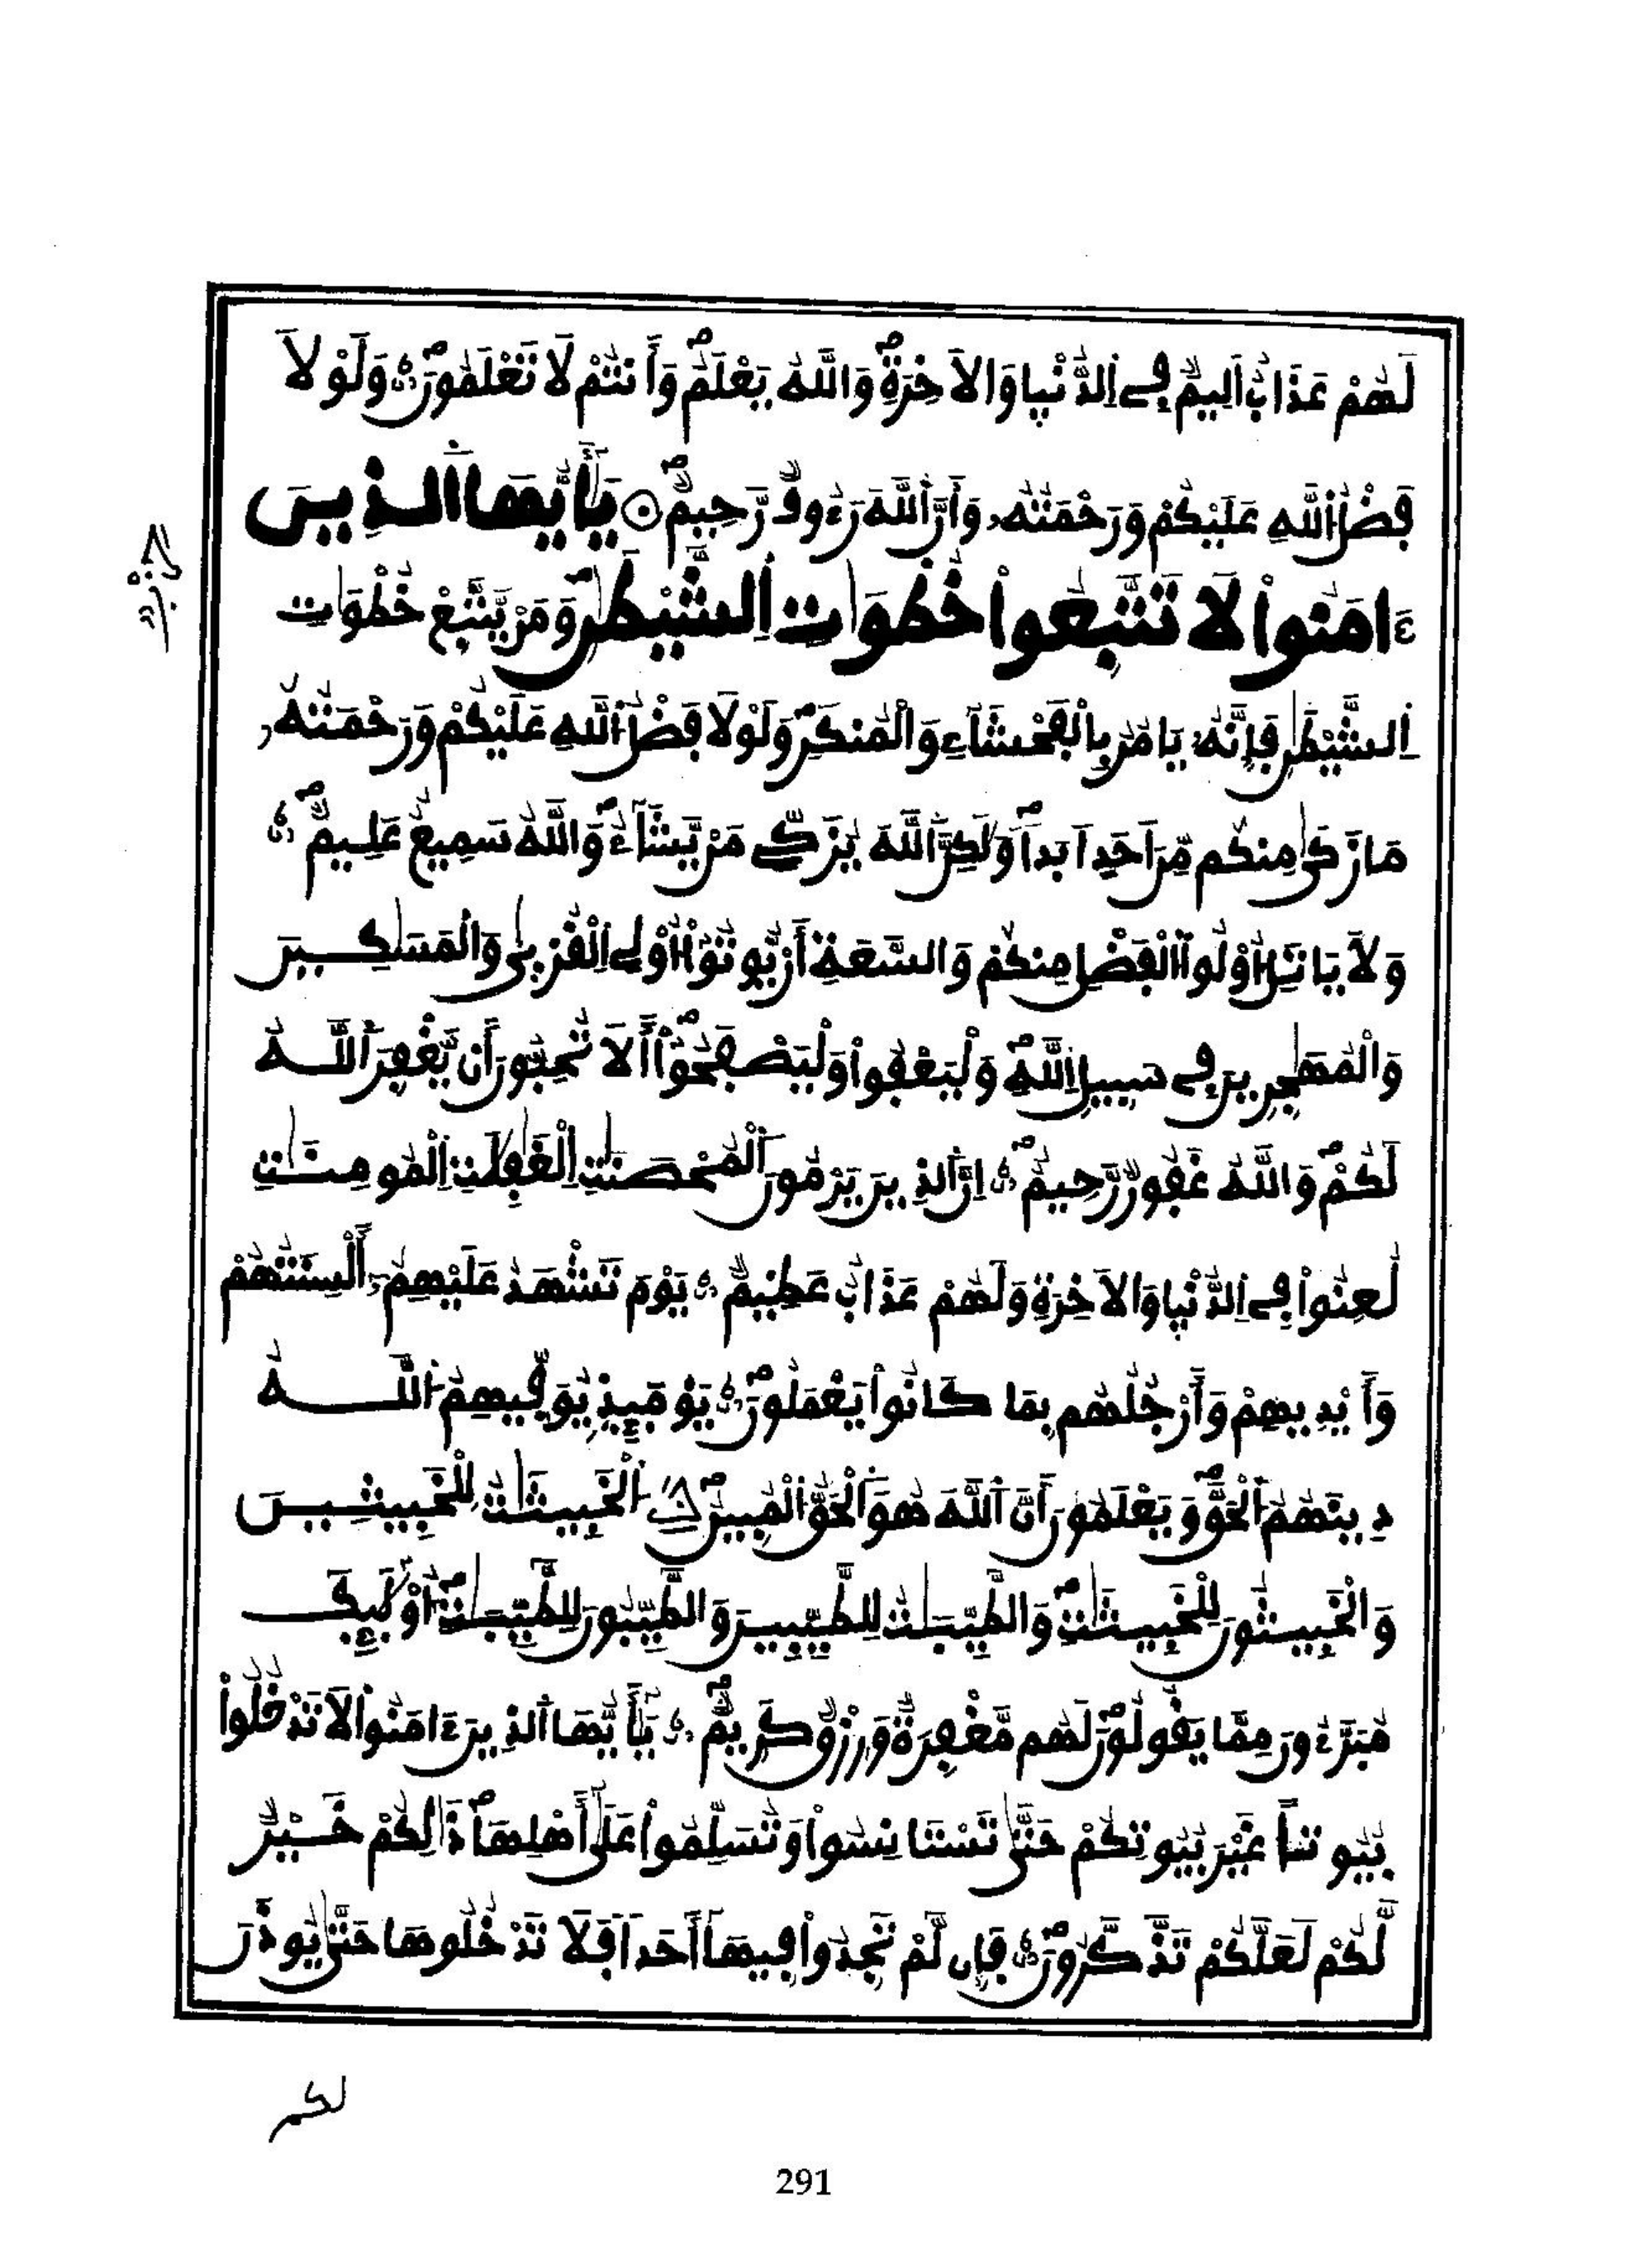 لَهُمْ عَذَابٌ اَلِيمٌ فِے اِ۬لدُّنْيا وَالَاخِرَةِۖ وَاللَّهُ يَعْلَمُۖ وَأَنتُمْ لَا تَعْلَمُونَۖ وَلَوْلَا
فَضْلُ اُ۬للَّهِ عَلَيْكُمْ وَرَحْمَتُهُۥ وَأَنَّ اَ۬للَّهَ رَءُوفٌ رَّحِيمٌۖ يَٰأَيُّهَا اَ۬لذِينَ
ءَامَنُواْ لَا تَتَّبِعُواْ خُطْوَٰتِ اِ۬لشَّيْطَٰنِۖ وَمَنْ يَّتَّبِعْ خُطْوَٰتِ
اِ۬لشَّيْطَٰنِ فَإِنَّهُۥ يَامُرُ بِالْفَحْشَآءِ وَالْمُنكَرِۖ وَلَوْلَا فَضْلُ اُ۬للَّهِ عَلَيْكُمْ وَرَحْمَتُهُۥ
مَا زَكَىٰ مِنكُم مِّنَ اَحَدٍ اَبَداٗۖ وَلَٰكِنَّ اَ۬للَّهَ يُزَكِّے مَنْ يَّشَآءُۖ وَاللَّهُ سَمِيعٌ عَلِيمٌۖ
وَلَا يَاتَلِ أُوْلُواْ اُ۬لْفَضْلِ مِنكُمْ وَالسَّعَةِ أَنْ يُّوتُوٓاْ أُوْلِے اِ۬لْقُرْبَىٰ وَالْمَسَٰكِينَ
وَالْمُهَٰجِرِينَ فِے سَبِيلِ اِ۬للَّهِۖ وَلْيَعْفُواْ وَلْيَصْفَحُوٓاْۖ أَلَا تُحِبُّونَ أَنْ يَّغْفِرَ اَ۬للَّهُ
لَكُمْۖ وَاللَّهُ غَفُورٌ رَّحِيمٌۖ اِنَّ اَ۬لذِينَ يَرْمُونَ اَ۬لْمُحْصَنَٰتِ اِ۬لْغَٰفِلَٰتِ اِ۬لْمُومِنَٰتِ
لُعِنُواْ فِے اِ۬لدُّنْيا وَالَاخِرَةِ وَلَهُمْ عَذَابٌ عَظِيمٌ يَوْمَ تَشْهَدُ عَلَيْهِمُۥٓ أَلْسِنَتُهُمْ
وَأَيْدِيهِمْ وَأَرْجُلُهُم بِمَا كَانُواْ يَعْمَلُونَۖ يَوْمَئِذٖ يُوَفِّيهِمُ اُ۬للَّهُ
دِينَهُمُ اُ۬لْحَقَّ وَيَعْلَمُونَ أَنَّ اَ۬للَّهَ هُوَ اَ۬لْحَقُّ اُ۬لْمُبِينُۖ اُ۬لْخَبِيثَٰتُ لِلْخَبِيثِينَ
وَالْخَبِيثُونَ لِلْخَبِيثَٰتِۖ وَالطَّيِّبَٰتُ لِلطَّيِّبِينَ وَالطَّيِّبُونَ لِلطَّيِّبَٰتِۖ أُوْلَٰٓئِكَ
مُبَرَّءُونَ مِمَّا يَقُولُونَۖ لَهُم مَّغْفِرَةٌ وَرِزْقٌ كَرِيمٌۖ يَٰأَيُّهَا اَ۬لذِينَ ءَامَنُواْ لَا تَدْخُلُواْ
بُيُوتاً غَيْرَ بُيُوتِكُمْ حَتَّىٰ تَسْتَانِسُواْ وَتُسَلِّمُواْ عَلَىٰٓ أَهْلِهَاۖ ذَٰلِكُمْ خَيْرٌ
لَّكُمْ لَعَلَّكُمْ تَذَّكَّرُونَۖ فَإِن لَّمْ تَجِدُواْ فِيهَآ أَحَداٗ فَلَا تَدْخُلُوهَا حَتَّىٰ يُوذَنَ
لكم
291